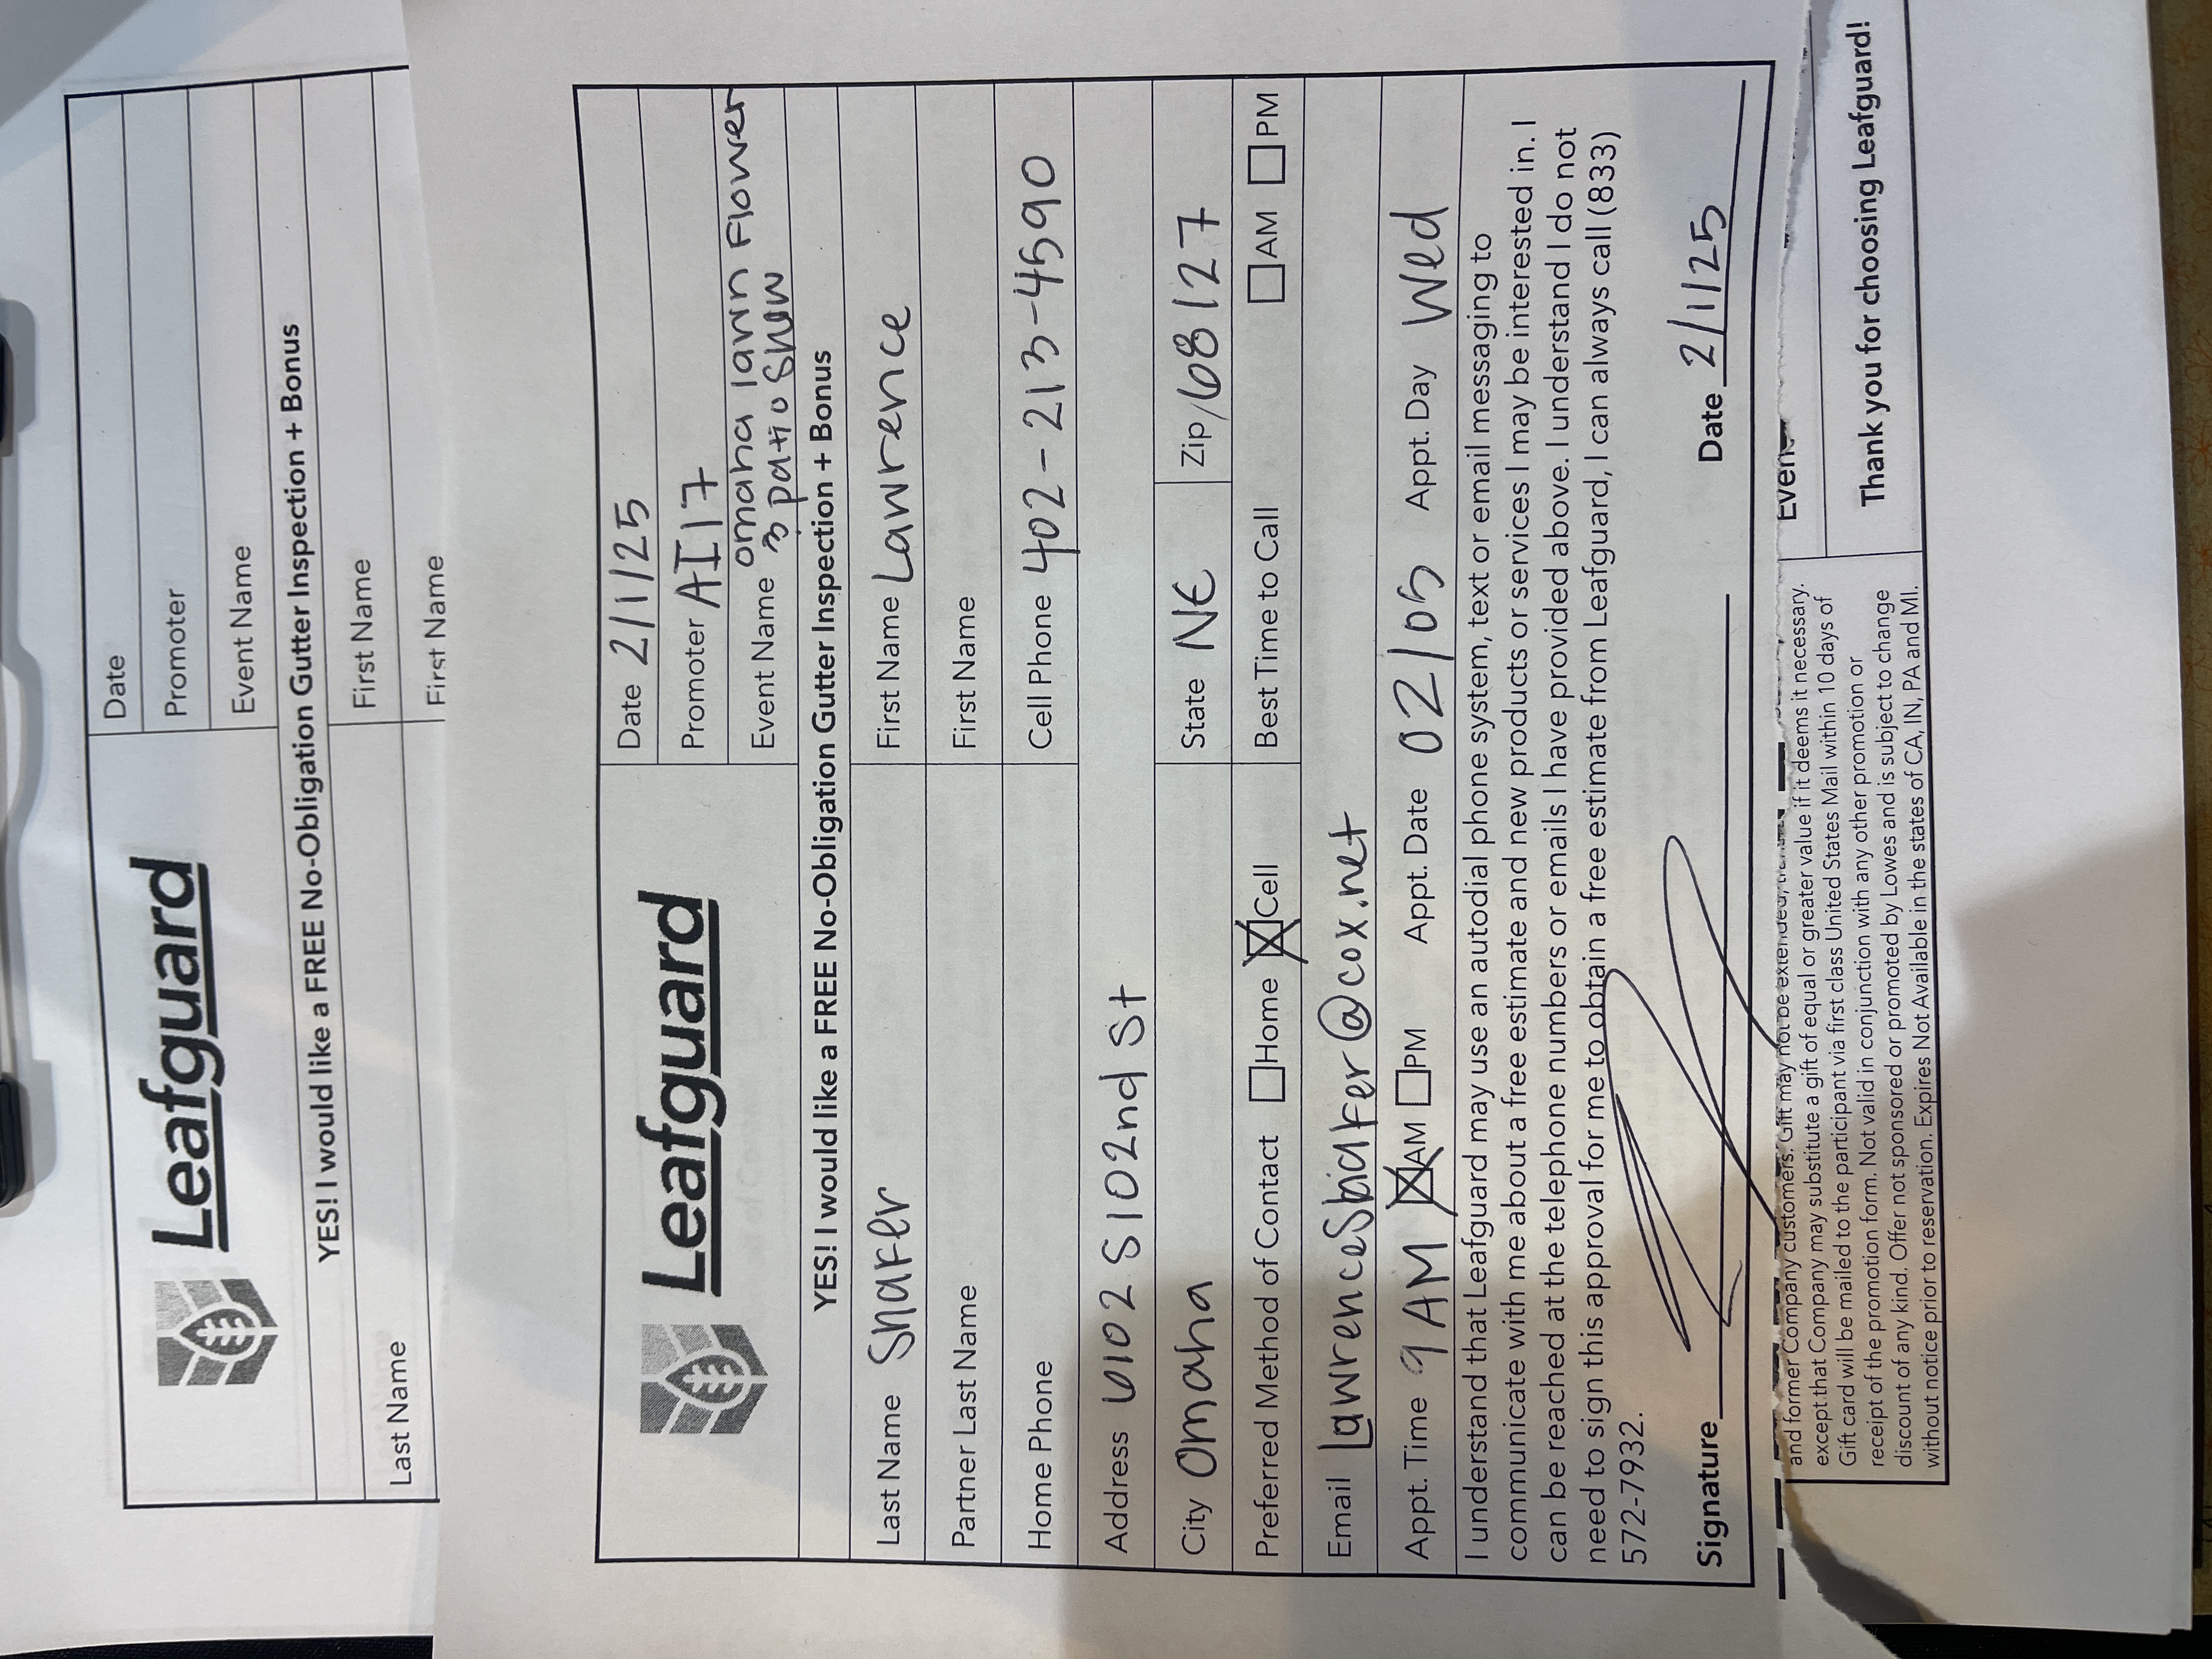 Leafguard
Date
Promoter
Event Name
YES! I would like a FREE No-Obligation Gutter Inspection + Bonus
Last Name
First Name
First Name
Leafguard
Date 2/1/25
Promoter AI17
Event Name omaha lawn Flower
& patio Show
YES! I would like a FREE No-Obligation Gutter Inspection + Bonus
Last Name Shafer
First Name Lawrence
Partner Last Name
First Name
Home Phone
Cell Phone 402-213-4590
Address 6102 S 102nd St
City Omaha
State NE
Zip 68127
Preferred Method of Contact Home Cell
Best Time to Call AM PM
Email @cox.net
Appt. Time 9 AM AM PM Appt. Date 02/05 Appt. Day Wed
I understand that Leafguard may use an autodial phone system, text or email messaging to
communicate with me about a free estimate and new products or services I may be interested in. I
can be reached at the telephone numbers or emails I have provided above. I understand I do not
need to sign this approval for me to obtain a free estimate from Leafguard, I can always call (833)
572-7932.
Signature
Date 2/1/25
and former Company customers. Gift may not be extended,
except that Company may substitute a gift of equal or greater value if it deems it necessary.
Gift card will be mailed to the participant via first class United States Mail within 10 days of
receipt of the promotion form. Not valid in conjunction with any other promotion or
discount of any kind. Offer not sponsored or promoted by Lowes and is subject to change
without notice prior to reservation. Expires Not Available in the states of CA, IN, PA and MI.
Thank you for choosing Leafguard!